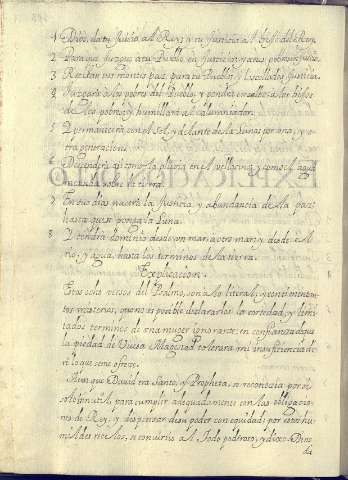 1 Dios, da tu Juicio al Rey: y tu Justicia al Hijo del Rey.
2 Para que Juzgue a tu Pueblo en Justicia: y a tus pobres en Juicio.
3 Reciban los montes paz, para tu Pueblo: y los collados Justicia.
4 Juzgará a los pobres del Pueblo, y hará salvos a los Hijos
de los pobres: y humillará al calumniador.
5 Y permanecerá con el Sol, y delante de la Luna: por una, y otra
generacion.
6 Descenderá asi como la pluvia en el vellocino: y como el agua
sobre la tierra.
7 En sus dias nacerá la Justicia, y abundancia de la paz:
hasta que se ponga la Luna.
8 Y tendrá dominio desde un mar, a otro mar: y desde el Rio,
hasta los terminos de la tierra.
Explicacion.
Estos ocho versos del Psalmo, son a lo literal, y
misterios, que no es posible declararlos la cortedad, y limitados
terminos de una muger ignorante; en confianza de que
la piedad de Vuesa Magestad tolerará mi insuficiencia, diré
lo que se me ofrece.
Aunque David era Santo, y Propheta, se reconocia por si
solo para cumplir adequadamente con las obligaciones
de Rey, y despensar de su poder con equidad: por estos humildes
recelos, se convirtió al Todo poderoso, y dixo: Dios
da